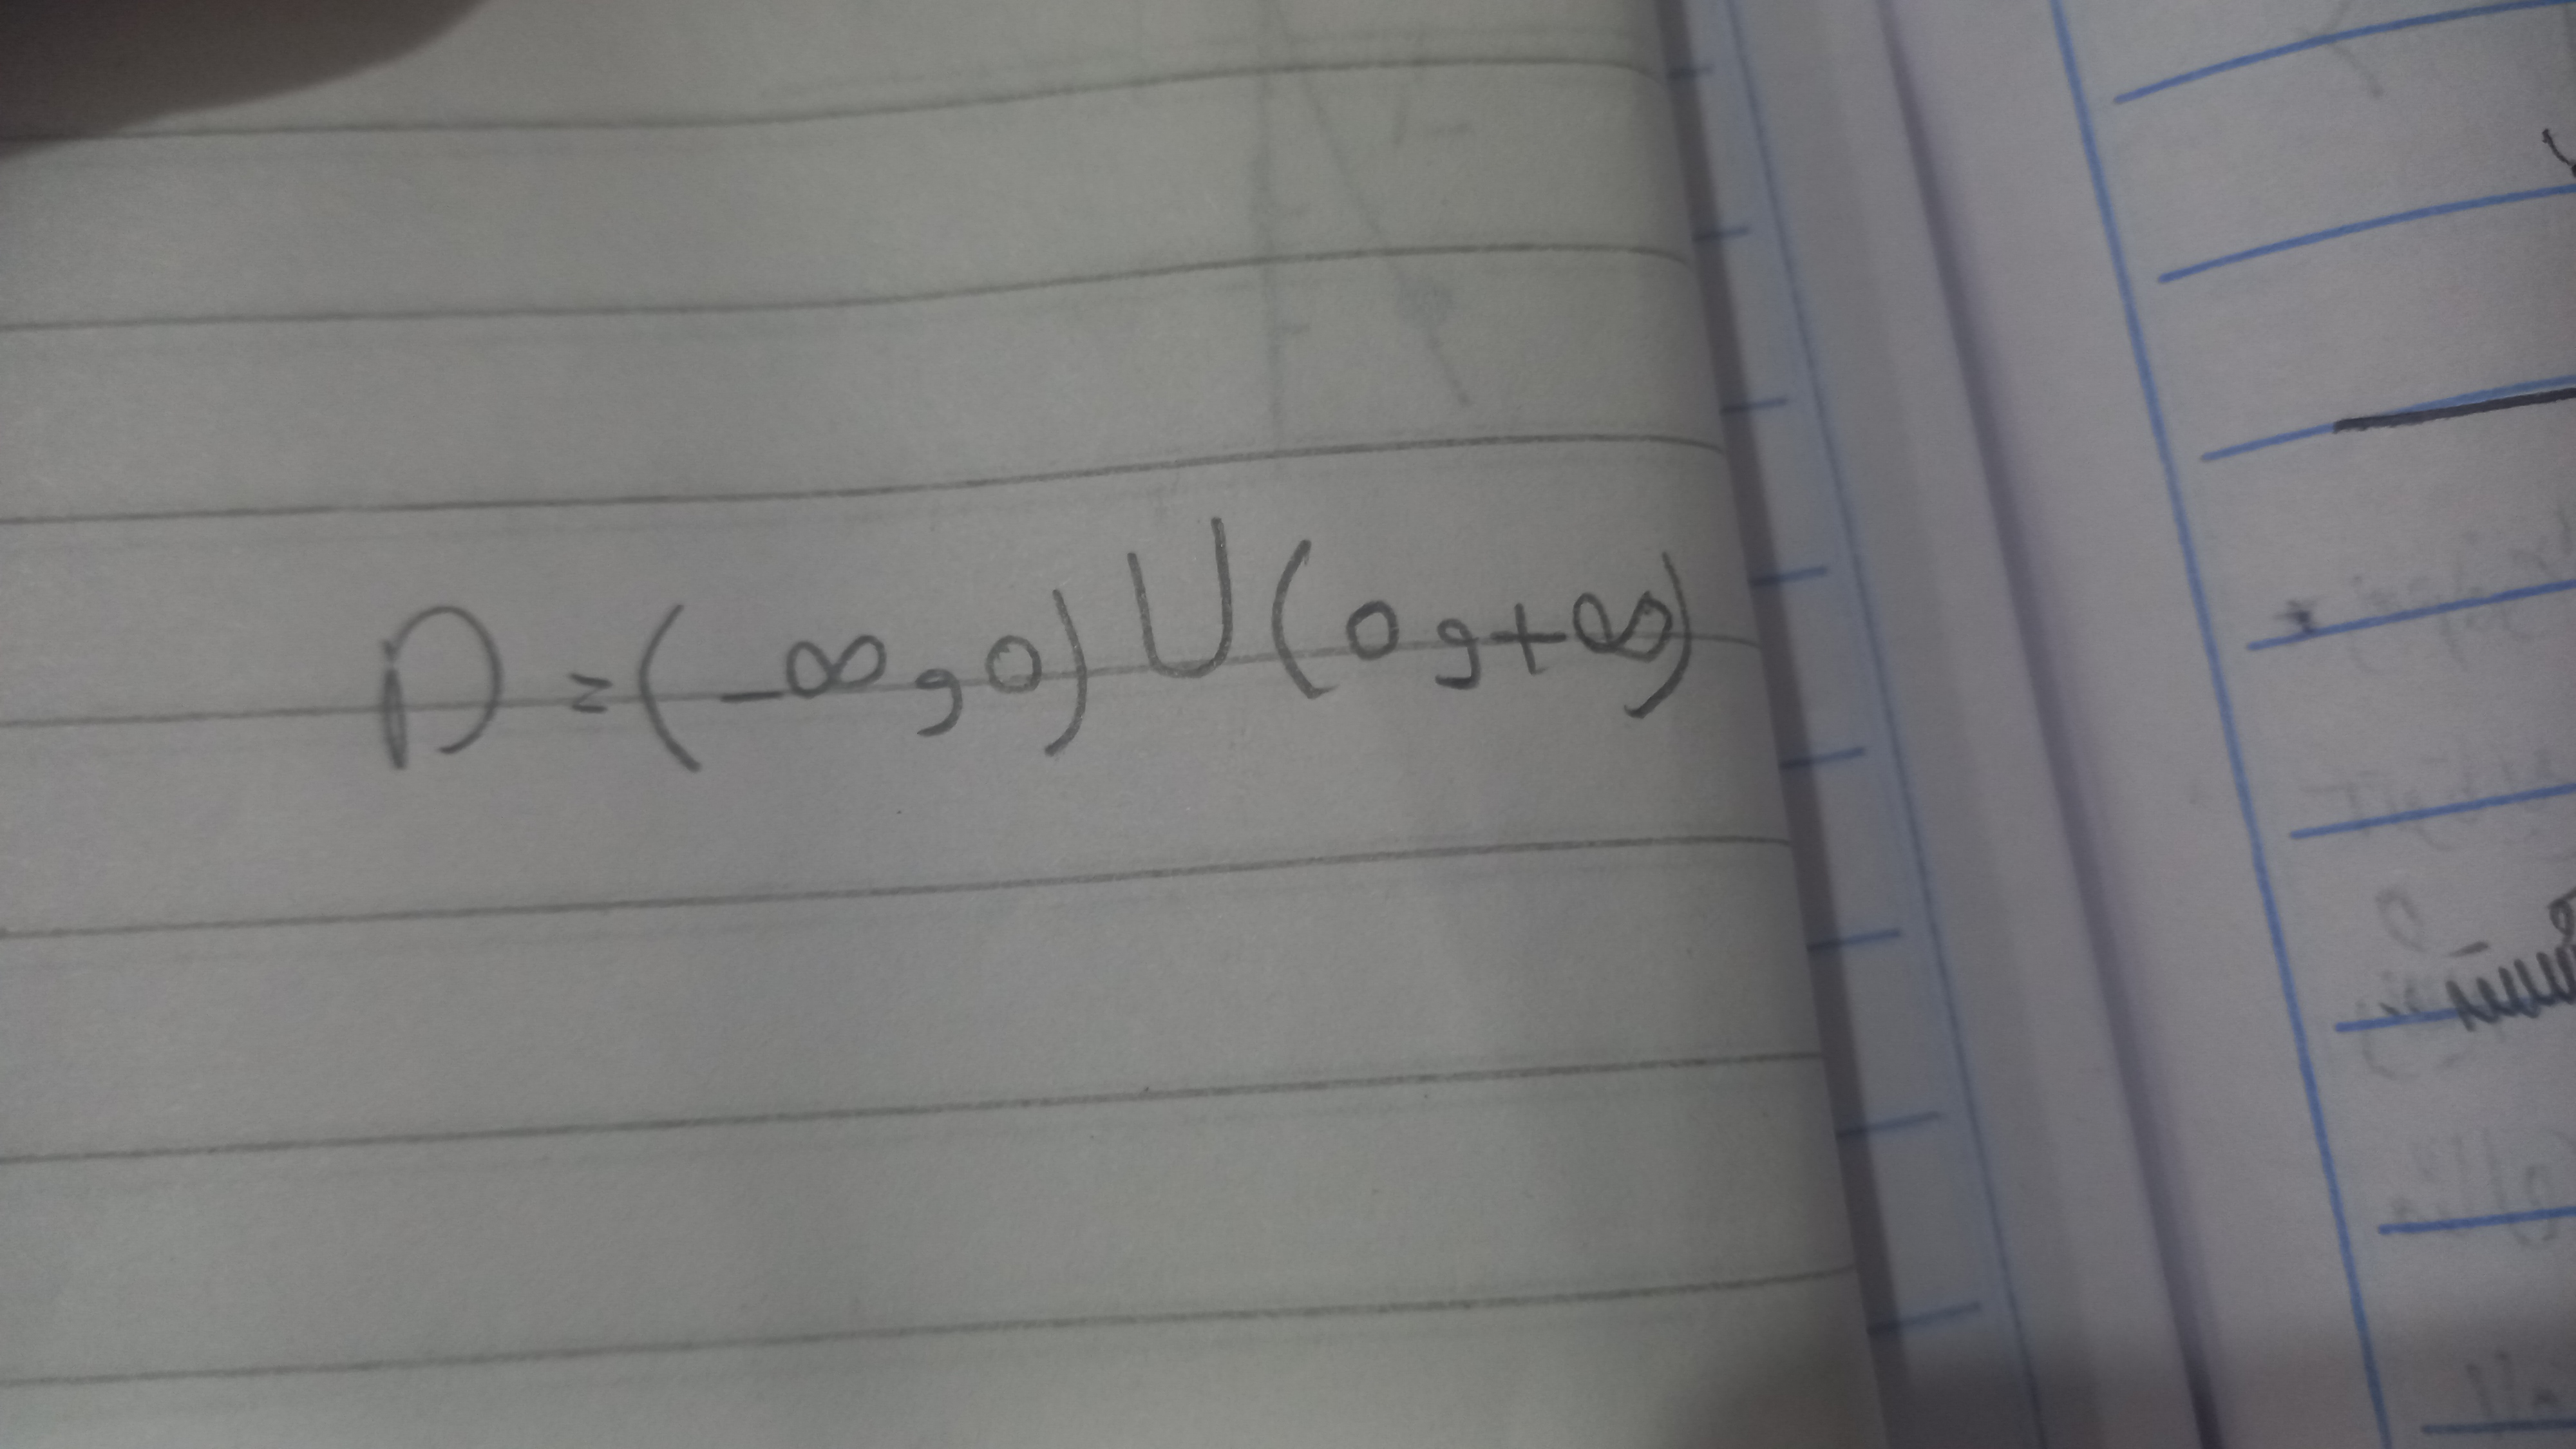 D = (-∞, 0) ∪ (0, +∞)